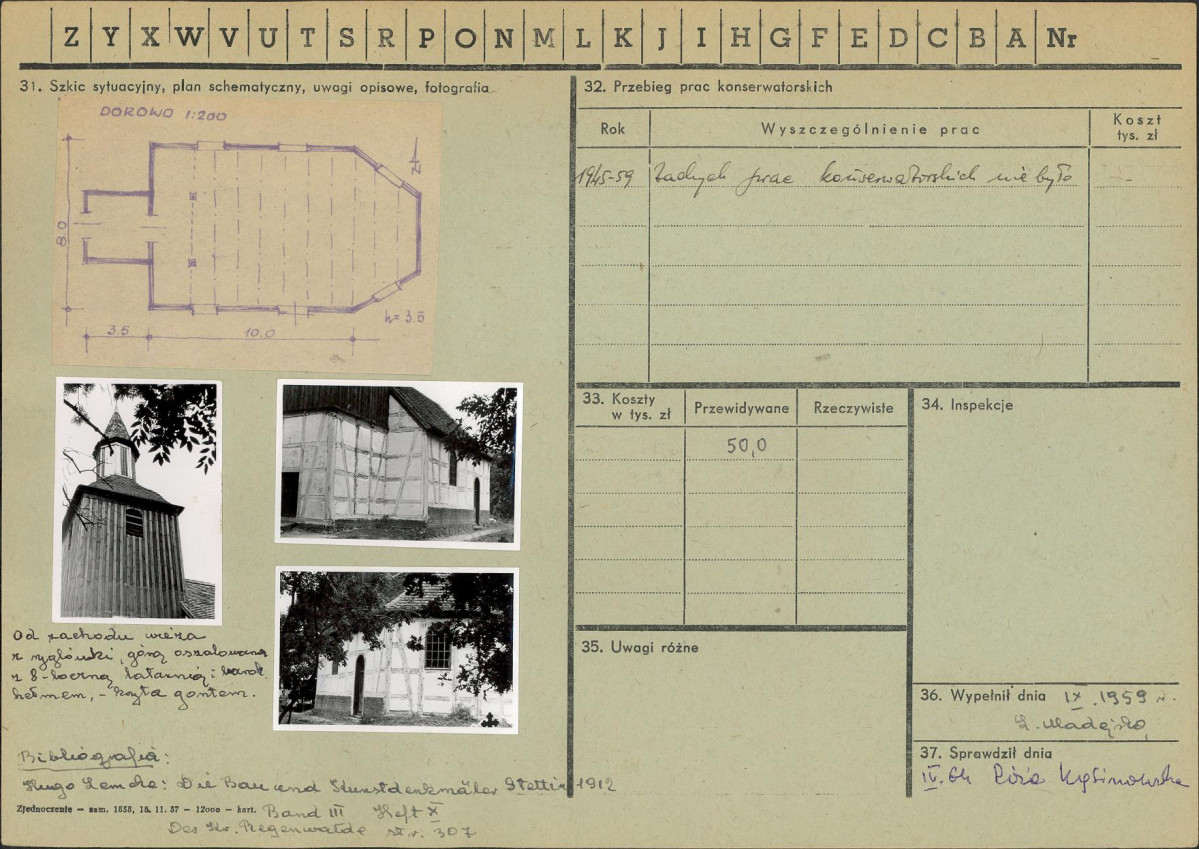 Z Y X W V U T S R P O N M L K J I H G F E D C B A Nr
31. Szkic sytuacyjny, plan schematyczny, uwagi opisowe, fotografia
DOROWO 1:200
8.0
3.5
10.0
h=3.5
Od zachodu wieża
z ryglówki, górą oszalowana
z 8-boczną latarnią i barok.
hełmem, - kryta gontem.
Bibliografia:
Hugo Lemcke: Die Bau und Kunstdenkmäler Stettin 1912
Zjednoczenie – zam. 1858, 18. 11. 57 – 12000 – kart.
Band III Heft X
Der Kr. Regenwalde str. 307
32. Przebieg prac konserwatorskich
Rok
Wyszczególnienie prac
Koszt
tys. zł
1945-59 Żadnych prac konserwatorskich nie było -
33. Koszty
w tys. zł
Przewidywane
Rzeczywiste
50,0
34. Inspekcje
35. Uwagi różne
36. Wypełnił dnia IX.1959 r.
37. Sprawdził dnia
IV. 64 Róża